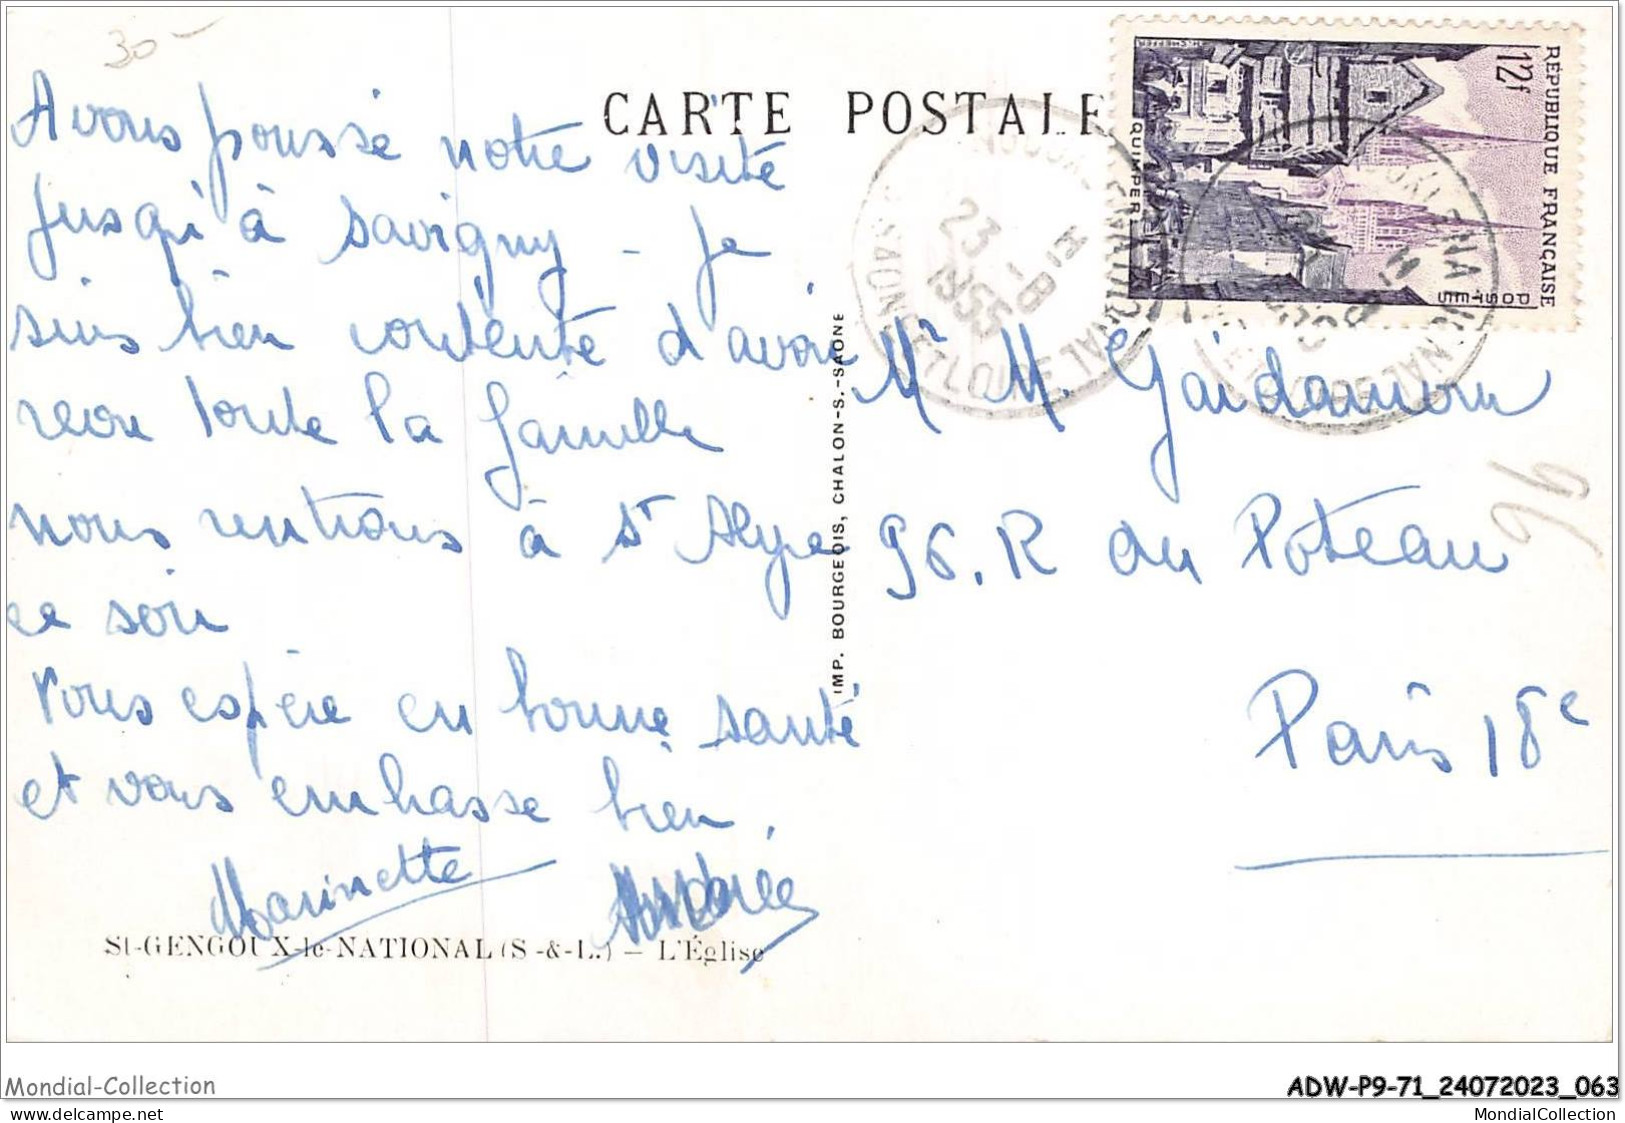 30-
CARTE POSTALE
RÉPUBLIQUE FRANÇAISE
12f
POSTES
QUIMPER
23 -8
1955
Avons poussé notre visite
jusqu'à Savigny - Je
suis bien contente d'avoir
revu toute la famille
nous rentrons à St Alype
ce soir
Vous espère en bonne santé
et vous embrasse bien,
Marinette Andrée
Mr M.
96. R du Poteau
Paris 18e
96
IMP. BOURGEOIS, CHALON-S.-SAONE
St-GENGOUX-le-NATIONAL (S-&-L.) — L'Église
Mondial-Collection
ADW-P9-71_24072023_063
www.delcampe.net
MondialCollection